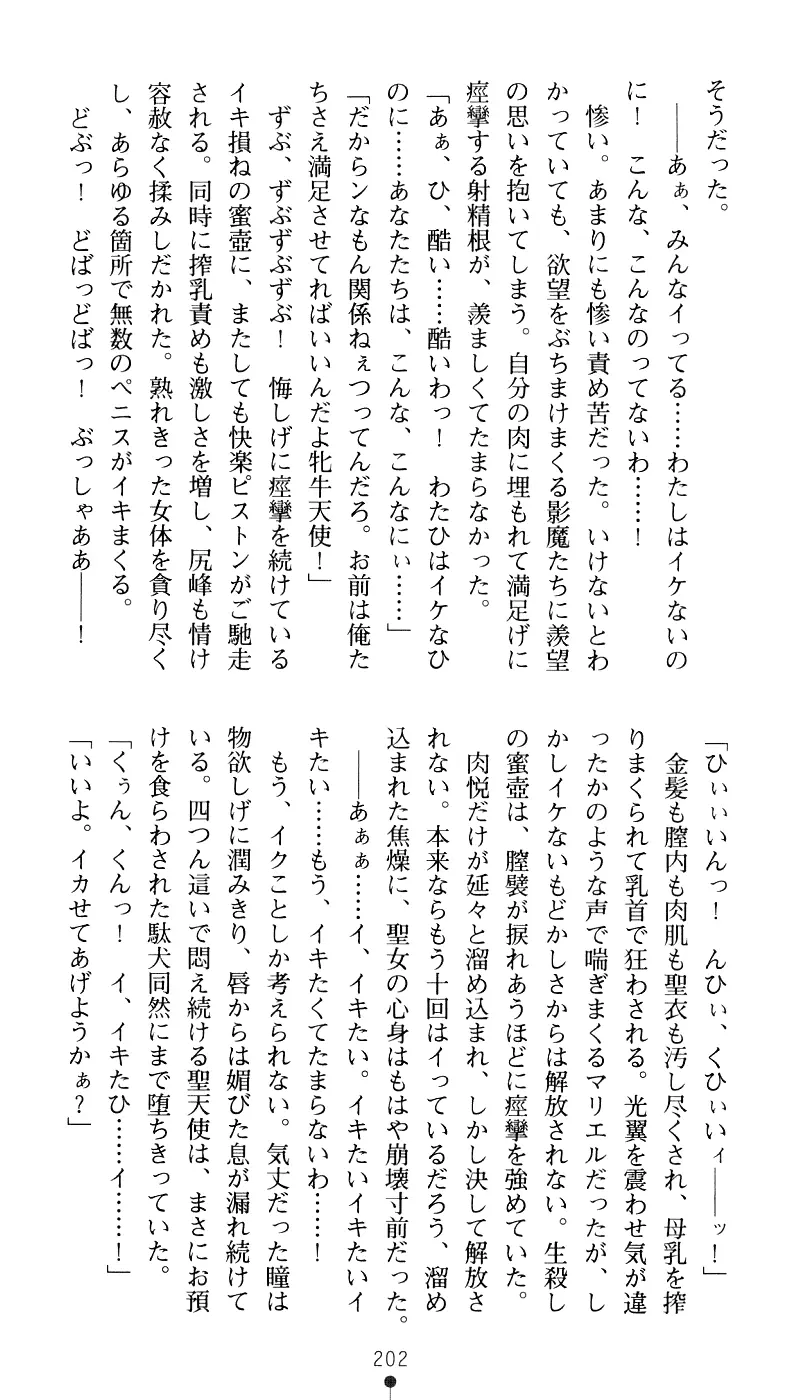 そうだった。
――あぁ、みんなイってる……わたしはイケないの
に！　こんな、こんなのってないわ……！
惨い。あまりにも惨い責め苦だった。いけないとわ
かっていても、欲望をぶちまけまくる影魔たちに羨望
の思いを抱いてしまう。自分の肉に埋もれて満足げに
痙攣する射精根が、羨ましくてたまらなかった。
「あぁ、ひ、酷い……酷いわっ！　わたひはイケなひ
のに……あなたたちは、こんな、こんなにぃ……」
「だからンなもん関係ねぇつってんだろ。お前は俺た
ちさえ満足させてればいいんだよ牝牛天使！」
ずぶ、ずぶずぶずぶ！　悔しげに痙攣を続けている
イキ損ねの蜜壺に、またしても快楽ピストンがご馳走
される。同時に搾乳責めも激しさを増し、尻峰も情け
容赦なく揉みしだかれた。熟れきった女体を貪り尽く
し、あらゆる箇所で無数のペニスがイキまくる。
どぶっ！　どばっどばっ！　ぶっしゃああ――！
「ひぃぃいんっ！　んひぃ、くひぃいィ――ッ！」
金髪も膣内も肉肌も聖衣も汚し尽くされ、母乳を搾
りまくられて乳首で狂わされる。光翼を震わせ気が違
ったかのような声で喘ぎまくるマリエルだったが、し
かしイケないもどかしさからは解放されない。生殺し
の蜜壺は、膣襞が捩れあうほどに痙攣を強めていた。
肉悦だけが延々と溜め込まれ、しかし決して解放さ
れない。本来ならもう十回はイっているだろう、溜め
込まれた焦燥に、聖女の心身はもはや崩壊寸前だった。
――あぁぁ……イ、イキたい。イキたいイキたいイ
キたい……もう、イキたくてたまらないわ……！
もう、イクことしか考えられない。気丈だった瞳は
物欲しげに潤みきり、唇からは媚びた息が漏れ続けて
いる。四つん這いで悶え続ける聖天使は、まさにお預
けを食らわされた駄犬同然にまで堕ちきっていた。
「くぅん、くんっ！　イ、イキたひ……イ……！」
「いいよ。イカせてあげようかぁ？」
202